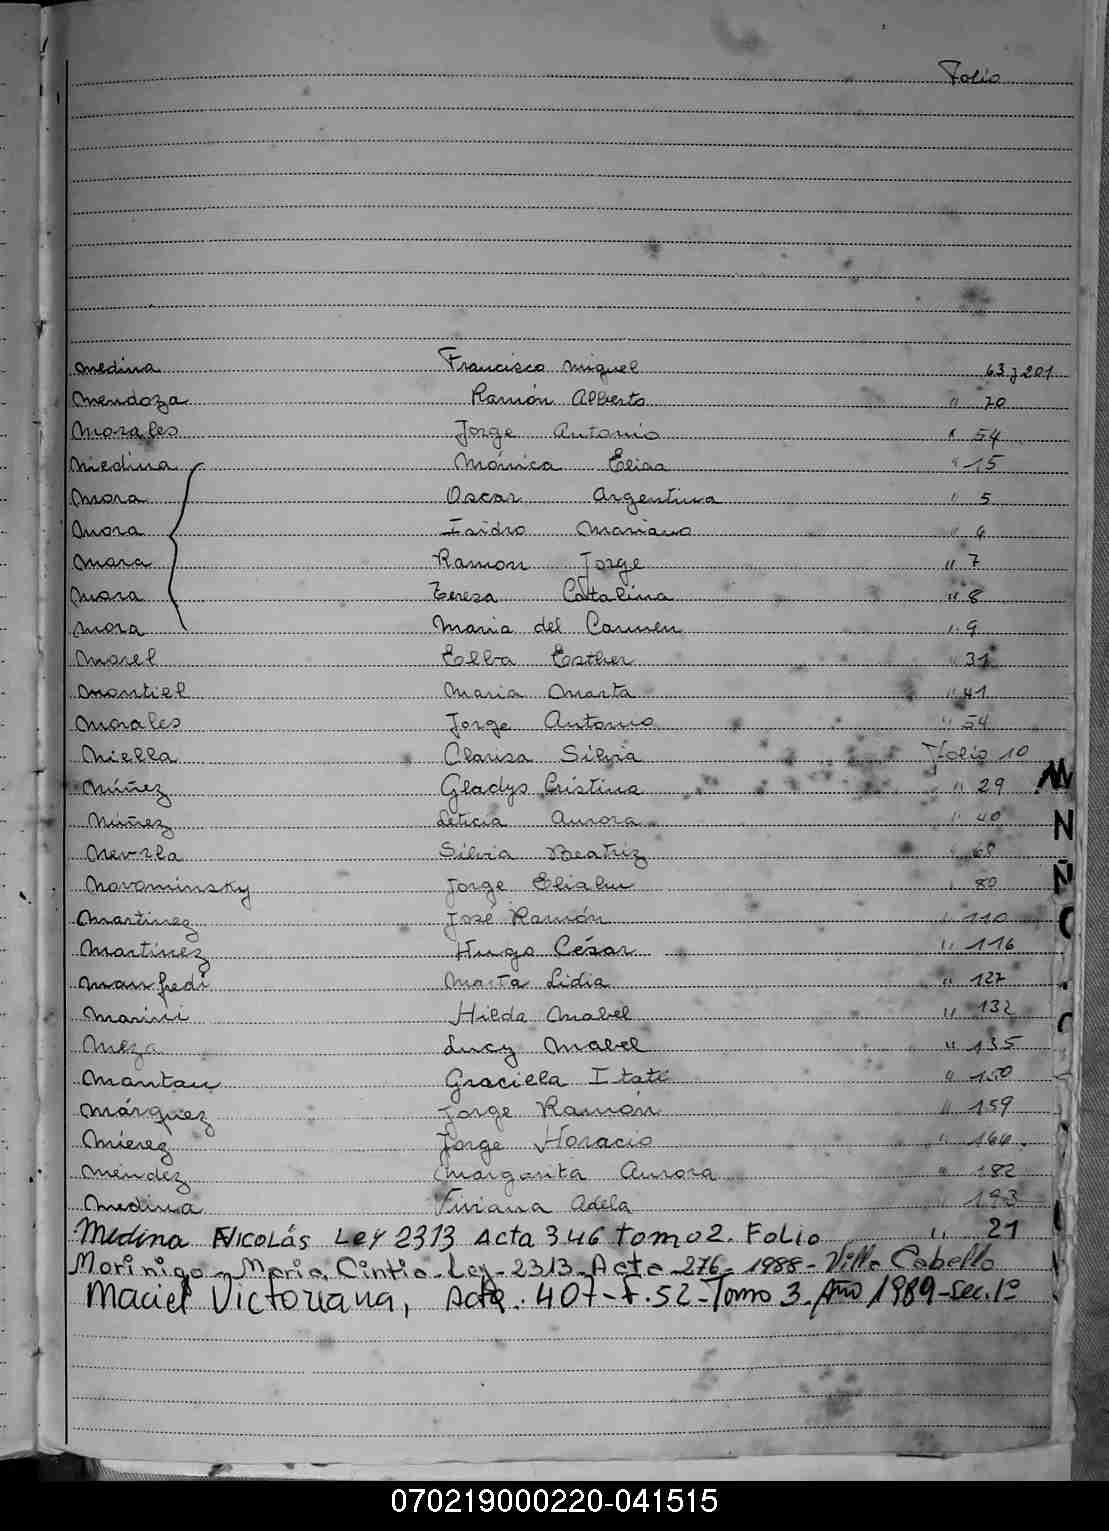 Folio
Medina Francisco Miguel 63 y 201
Mendoza Ramón Alberto " 70
Morales Jorge Antonio " 54
Miedina Mónica Elisa " 15
Mora Oscar Argentina " 5
Mora Isidro Mariano " 6
Mora Ramon Jorge " 7
Mora Teresa Catalina " 8
Mora Maria del Carmen " 9
Morel Elba Esther " 31
Montiel Maria Marta " 41
Morales Jorge Antonio " 54
Niella Clarisa Silvia Folio 10
Núñez Gladys Cristina " 29
Núñez Leticia Aurora " 40
Silvia Beatriz " 68
Novominsky Jorge " 80
Martinez José Ramón " 110
Martínez Hugo César " 116
Manfredi Marta Lidia " 127
Marini Hilda Mabel " 132
Meza Lucy Mabel " 135
Mantau Graciela Itatí " 150
Márquez Jorge Ramón " 159
Mierez Jorge Horacio " 164
Méndez Margarita Aurora " 182
Medina Viviana Adela " 193
Medina Nicolás Ley 2313 Acta 346 Tomo 2. Folio " 21
Morinigo - Maria Cintia - Ley - 2313 - Acta - 276 - 1988 - Villa Cabello
Maciel Victoriana, Acta. 407 - F. 52 - Tomo 3. Año 1989 - Sec. 1º
M
N
Ñ
070219000220-041515